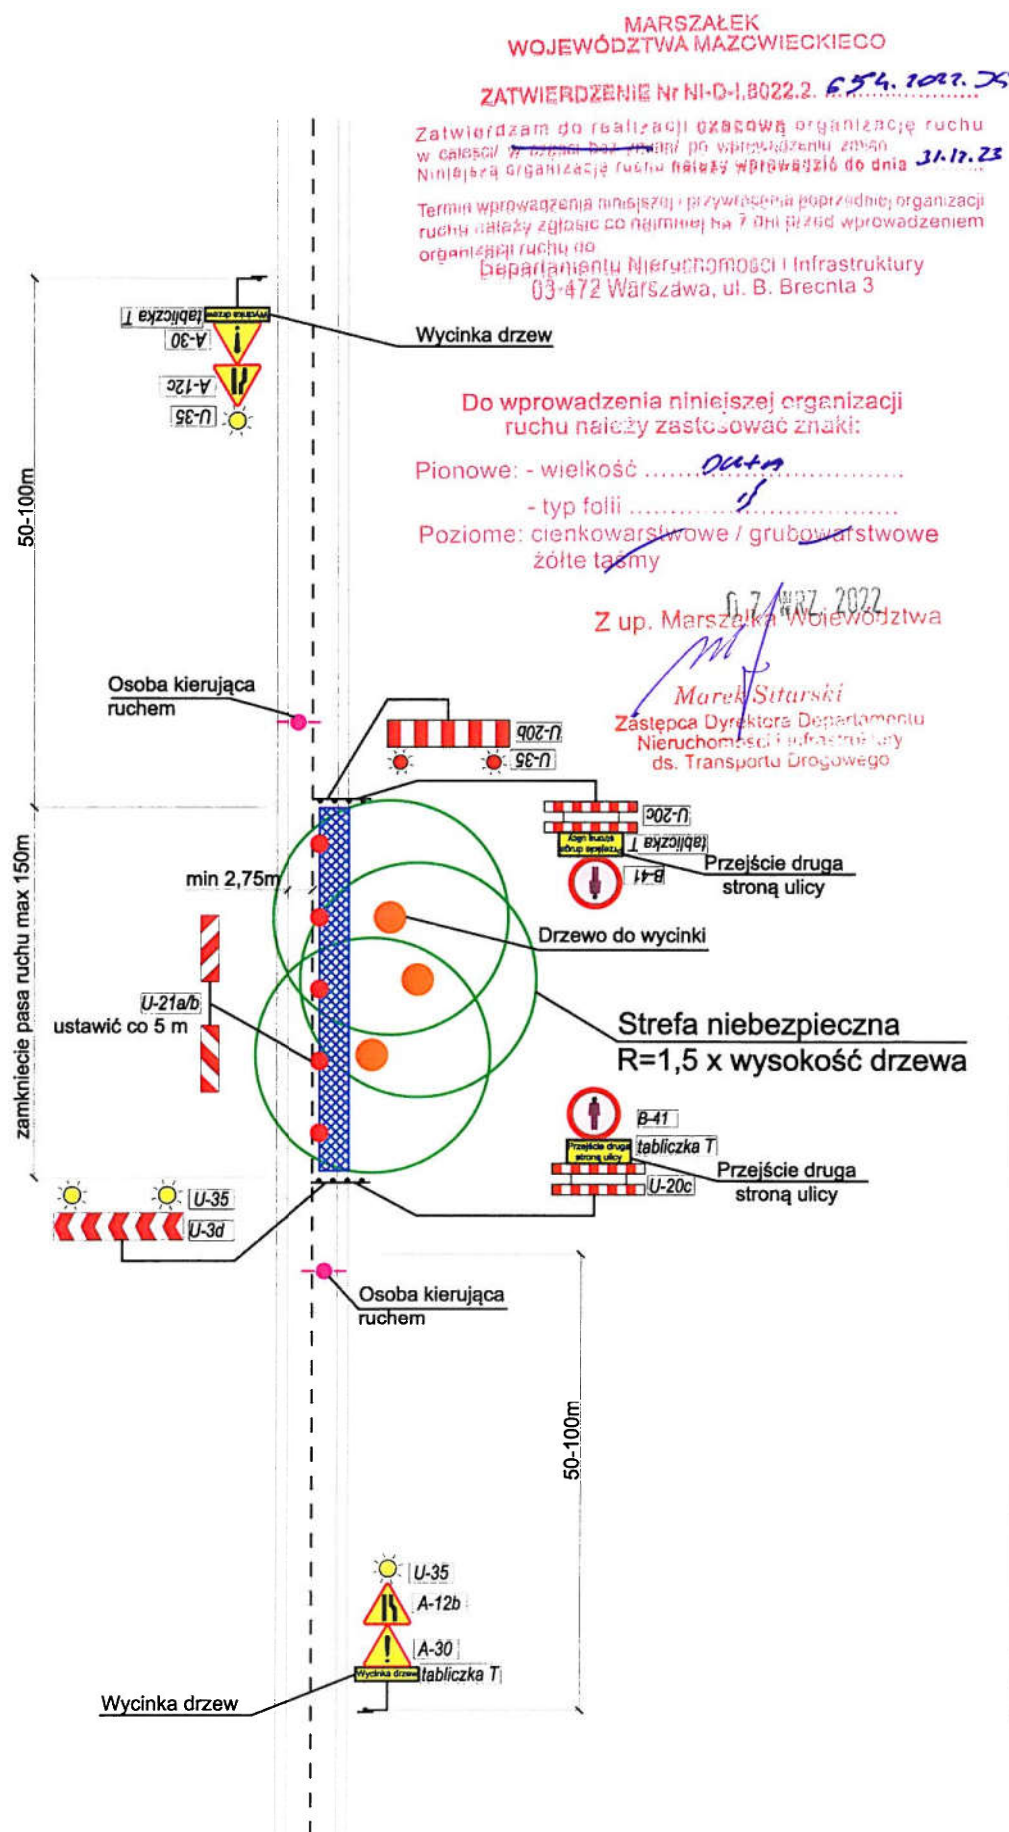 MARSZAŁEK
WOJEWÓDZTWA MAZOWIECKIEGO
ZATWIERDZENIE Nr NI-D-I.8022.2. 654.2022.
Zatwierdzam do realizacji czasową organizację ruchu
w całości/ w części bez zmian/ po wprowadzeniu zmian
Niniejszą organizację ruchu należy wprowadzić do dnia 31.12.23
Termin wprowadzenia niniejszej i przywrócenia poprzedniej organizacji
ruchu należy zgłosić co najmniej na 7 dni przed wprowadzeniem
organizacji ruchu do
Departamentu Nieruchomości i Infrastruktury
03-472 Warszawa, ul. B. Brechta 3
Wycinka drzew
tabliczka T
A-30
A-12c
U-35
Wycinka drzew
Do wprowadzenia niniejszej organizacji
ruchu należy zastosować znaki:
Pionowe: - wielkość
- typ folii
Poziome: cienkowarstwowe / grubowarstwowe
żółte taśmy
50-100m
07 WRZ. 2022
Z up. Marszałka Województwa
Marek Sitarski
Zastępca Dyrektora Departamentu
Nieruchomości i Infrastruktury
ds. Transportu Drogowego
Osoba kierująca
ruchem
U-20b
U-35
U-20c
tabliczka T
Przejście druga
stroną ulicy
B-41
Przejście druga
stroną ulicy
min 2,75m
Drzewo do wycinki
zamkniecie pasa ruchu max 150m
U-21a/b
ustawić co 5 m
Strefa niebezpieczna
R=1,5 x wysokość drzewa
B-41
Przejście druga
stroną ulicy
tabliczka T
U-20c
Przejście druga
stroną ulicy
U-35
U-3d
Osoba kierująca
ruchem
50-100m
U-35
A-12b
A-30
Wycinka drzew
tabliczka T
Wycinka drzew